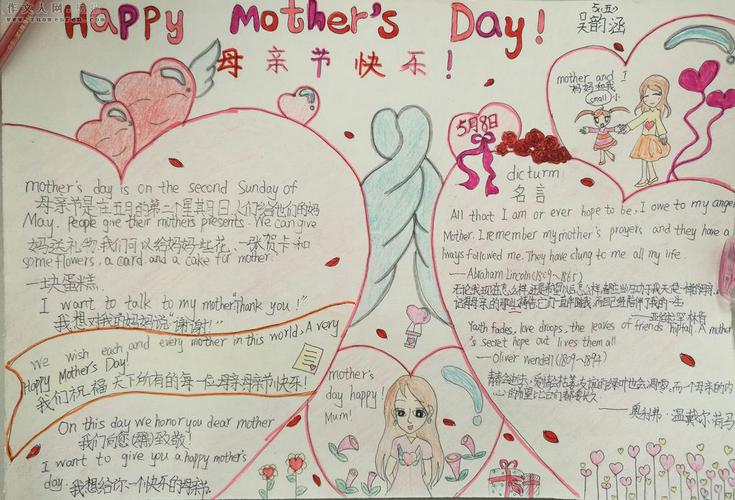 作文人网
www.zuowenren.com
Happy Mother's Day!
母亲节快乐!
五(五)
吴韵涵
mother and I
妈妈和我
small 小
5月8日
mother's day is on the second Sunday of
母亲节是在五月的第二个星期日,人们给他们的妈
May. People give their mothers presents. We can give
妈送礼物,我们可以给妈妈红花、一张贺卡和
some flowers, a card and a cake for mother.
一块蛋糕.
I want to talk to my mother"Thank you!"
我想对我的妈妈说"谢谢!"
We wish each and every mother in this world, A very
Happy Mother's Day!
我们祝福天下所有的每一位母亲母亲节快乐!
On this day we honor you dear mother
我们向您致敬!
I want to give you a happy mother's
day. 我想给你一个快乐的母亲节
mother's
day happy!
Mum!
dicturm
名言
All that I am or ever hope to be, I owe to my angel
Mother. I remember my mother's prayers and they have a
lways followed me. They have clung to me all my life.
——Abraham Lincoln (1809~1865)
——亚伯拉罕·林肯
Youth fades, love droops, the leaves of friends hip fall. A mother
's secret hope out lives them all
——Oliver wendell (1809~1894)
青春会逝去,爱情会枯萎,友谊的绿叶也会凋零,而一个母亲的内
心的希望比它们都要长久
——奥利弗·温戴尔·荷马